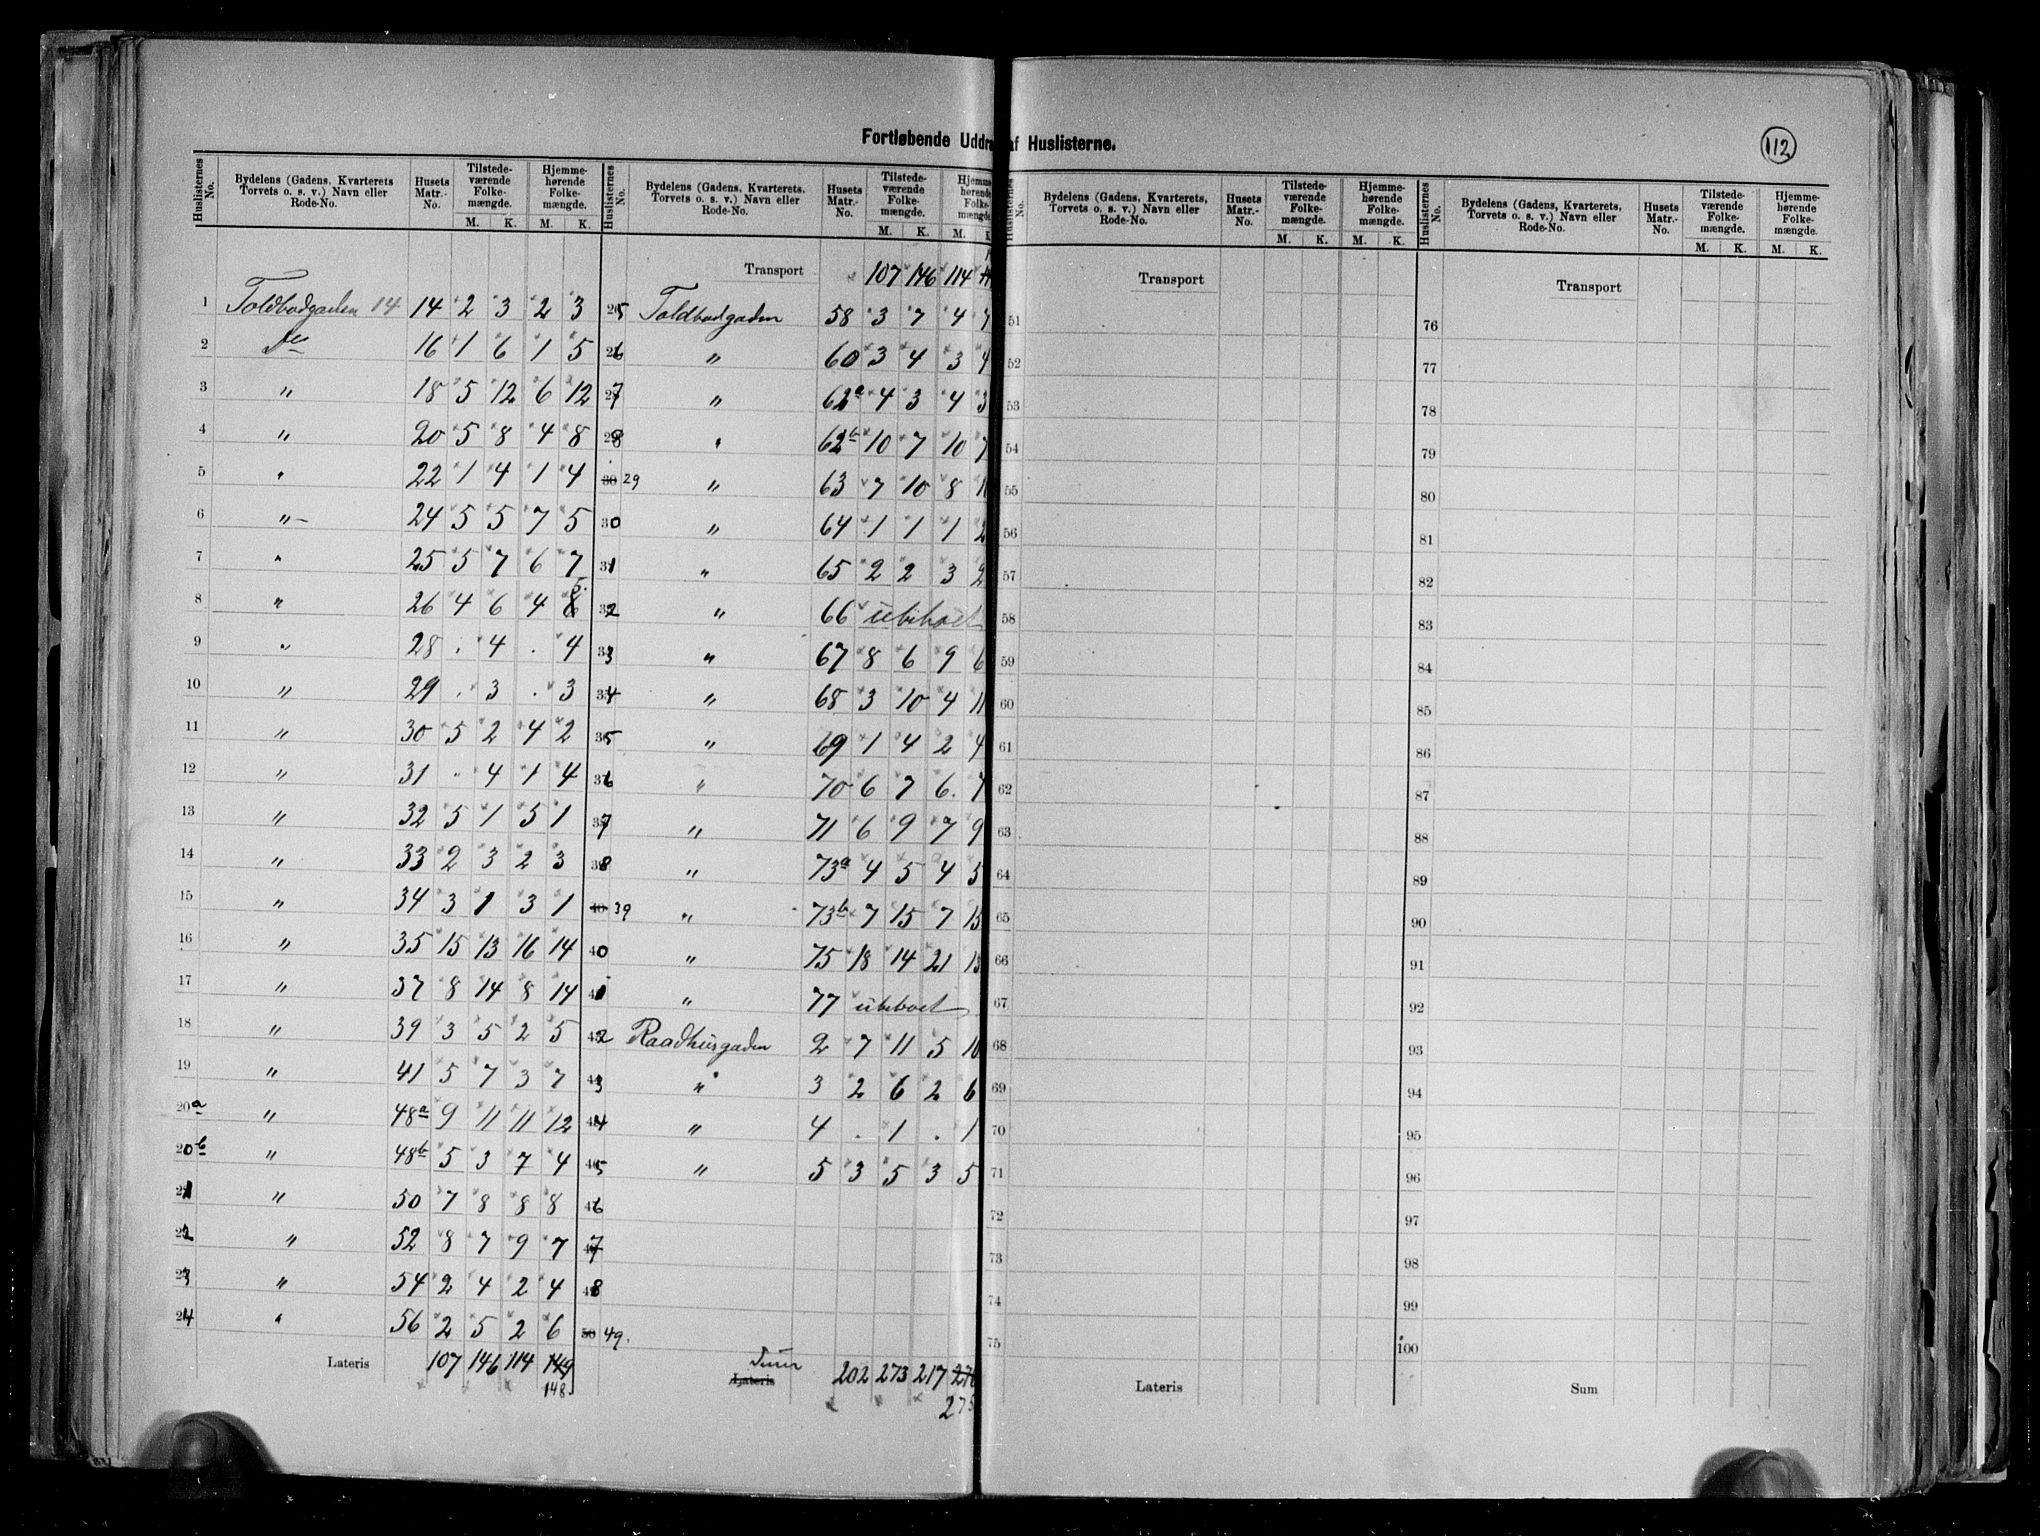 Fortløbende Uddra af Huslisterne.
112
Huslisternes No. | Bydelens (Gadens, Kvarterets Torvets o. s. v.) Navn eller Rode-No. | Husets Matr.-No. | Tilstedeværende Folkemængde. M. K. | Hjemmehørende Folkemængde. M. K.
1 Toldbodgaden 14 14 2 3 2 3
2 Do 16 1 6 1 5
3 " 18 5 12 6 12
4 " 20 5 8 4 8
5 " 22 1 4 1 4
6 " 24 5 5 7 5
7 " 25 5 7 6 7
8 " 26 4 6 4 8
9 " 28 . 4 . 4
10 " 29 . 3 . 3
11 " 30 5 2 4 2
12 " 31 . 4 1 4
13 " 32 5 1 5 1
14 " 33 2 3 2 3
15 " 34 3 1 3 1
16 " 35 15 13 16 14
17 " 37 8 14 8 14
18 " 39 3 5 2 5
19 " 41 5 7 3 7
20a " 48a 9 11 11 12
20b " 48b 5 3 7 4
21 " 50 7 8 8 8
22 " 52 8 7 9 7
23 " 54 2 4 2 4
24 " 56 2 5 2 6
Lateris 107 146 114 149
148
Huslisternes No. | Bydelens (Gadens, Kvarterets, Torvets o. s. v.) Navn eller Rode-No. | Husets Matr.-No. | Tilstedeværende Folkemængde. M. K. | Hjemmehørende Folkemængde M. K
Transport 107 146 114
25 Toldbodgaden 58 3 7 4 7
26 " 60 3 4 3 4
27 " 62a 4 3 4 3
28 " 62b 10 7 10 7
29 " 63 7 10 8
30 " 64 1 1 1 2
31 " 65 2 2 3 2
32 " 66 ubeboet
33 " 67 8 6 9 6
34 " 68 3 10 4 11
35 " 69 1 4 2 4
36 " 70 6 7 6 7
37 " 71 6 9 7 9
38 " 73a 4 5 4 5
39 " 73b 7 15 7 15
40 " 75 18 14 21
41 " 77 ubeboet
42 Raadhusgaden 2 7 11 5 10
43 " 3 2 6 2 6
44 " 4 . 1 . 1
45 " 5 3 5 3 5
46
47
48
49.
Lateris 202 273 217 276
275
Huslisternes No. | Bydelens (Gadens, Kvarterets, Torvets o. s. v.) Navn eller Rode-No. | Husets Matr.-No. | Tilstedeværende Folkemængde. M. K. | Hjemmehørende Folkemængde. M. K.
Transport
51
52
53
54
55
56
57
58
59
60
61
62
63
64
65
66
67
68
69
70
71
72
73
74
75
Lateris
Huslisternes No. | Bydelens (Gadens, Kvarterets, Torvets o. s. v.) Navn eller Rode-No. | Husets Matr.-No. | Tilstedeværende Folkemængde. M. K. | Hjemmehørende Folkemængde. M. K.
Transport
76
77
78
79
80
81
82
83
84
85
86
87
88
89
90
91
92
93
94
95
96
97
98
99
100
Sum